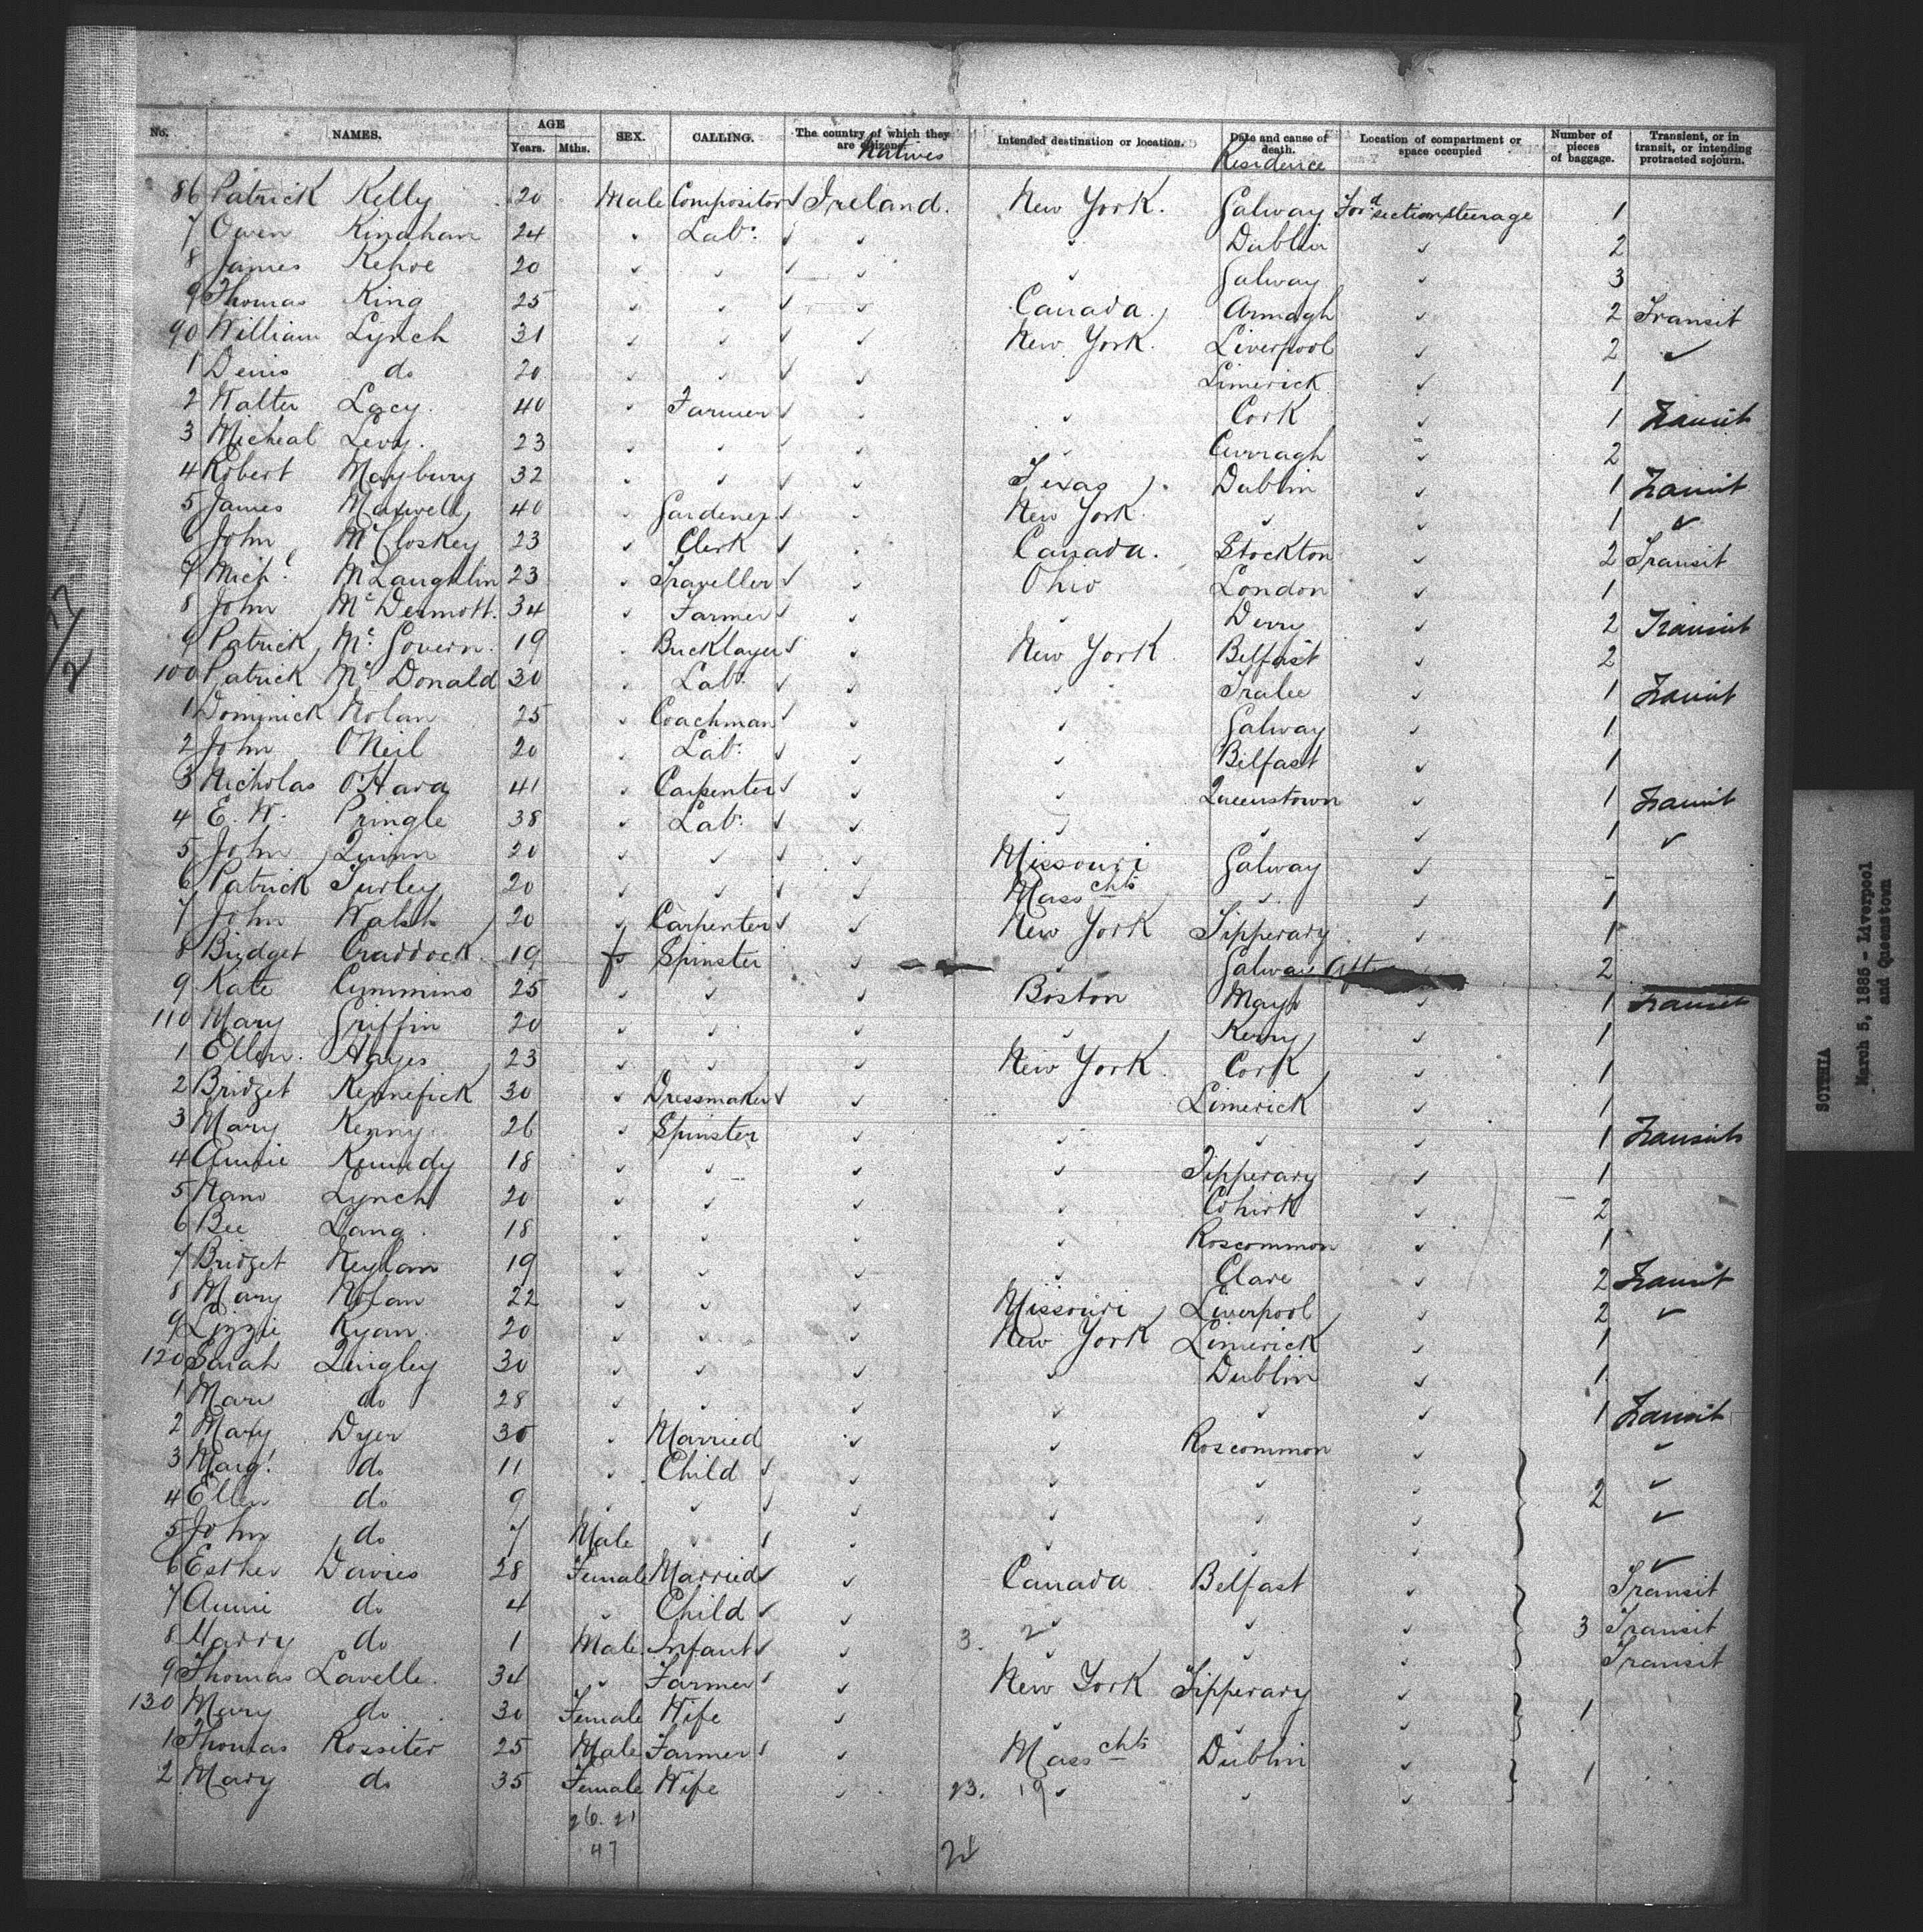 No. NAMES. AGE Years. Mths. SEX. CALLING. The country of which they are citizens. Natives Intended destination or location. Date and cause of death. Residence Location of compartment or space occupied Number of pieces of baggage. Transient, or in transit, or intending protracted sojourn.
86 Patrick Kelly 20 Male Compositor Ireland. New York. Galway For'd section steerage 1
7 Owen Kinahan 24 " Lab: " " Dublin " 2
8 James Kehoe 20 " " " " Galway " 3
9 Thomas King 25 " " " Canada Armagh " 2 Transit
90 William Lynch 31 " " " New York. Liverpool " 2 "
1 Denis do 20 " " " " Limerick " 1
2 Walter Lacy. 40 " Farmer " " Cork " 1 Transit
3 Micheal Levy. 23 " " " " Curragh " 2
4 Robert Maybury 32 " " " Texas Dublin " 1 Transit
5 James Maxwell 40 " Gardener " New York. " " 1 "
6 John McCloskey 23 " Clerk " Canada. Stockton " 2 Transit
7 Mich! McLaughlin 23 " Traveller " Ohio London " 1
8 John McDermott. 34 " Farmer " " Derry " 2 Transit
9 Patrick McGovern. 19 " Bricklayer " New York Belfast " 2
100 Patrick McDonald 30 " Lab: " " Tralee " 1 Transit
1 Dominick Nolan 25 " Coachman " " Galway " 1
2 John O'Neil 20 " Lab: " " Belfast " 1
3 Nicholas O'Hara 41 " Carpenter " " Queenstown " 1 Transit
4 E. W. Pringle 38 " Lab: " " " " 1 "
5 John Quinn 20 " " " Missouri Galway " -
6 Patrick Turley 20 " " " Masschts " " 1
7 John Walsh 20 " Carpenter " New York Tipperary " 1
8 Bridget Craddock. 19 f Spinster " " Galway Aft 2
9 Kate Cummins 25 " " " Boston Mayo " 1 Transit
110 Mary Griffin 20 " " " " Kerry " 1
1 Ellen Hayes 23 " " " New York Cork " 1
2 Bridget Kennefick 30 " Dressmaker " " Limerick " 1
3 Mary Kenny 26 " Spinster " " " " 1 Transit
4 Annie Kennedy 18 " " " " Tipperary " 1
5 Nano Lynch 20 " " " " " 2
6 Bee Lang. 18 " " " " Roscommon " 1
7 Bridget Neylan 19 " " " " Clare " 2 Transit
8 Mary Nolan 22 " " " Missouri Liverpool " 2 "
9 Lizzie Ryan. 20 " " " New York Limerick " 1
120 Sarah Quigley 30 " " " " Dublin " 1
1 Mary do 28 " " " " " " 1 Transit
2 Mary Dyer 30 " Married " " Roscommon " "
3 Margt do 11 " Child " " " " 2 "
4 Ellen do 9 " " " " " " "
5 John do 7 Male " " " " " "
6 Esther Davies 28 Female Married " Canada Belfast " Transit
7 Annie do 4 " Child " " " " 3 Transit
8 Harry do 1 Male Infant " 3. 2 " " " Transit
9 Thomas Lavelle. 34 " Farmer " New York Tipperary "
130 Mary do 30 Female Wife " " " " 1
1 Thomas Rossiter 25 Male Farmer " Masschts Dublin "
2 Mary do 35 Female Wife " 23. 19 " " " 1
26. 21
47
SCYTHIA
March 5, 1885 - Liverpool
and Queenstown